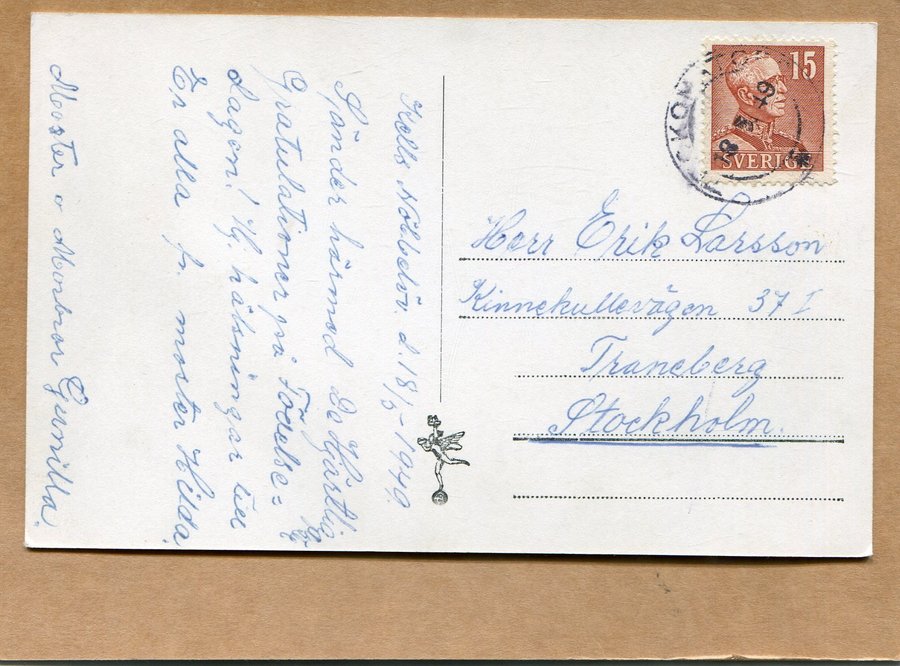 15
SVERIGE
18 5 49
Herr Erik Larsson
Kinnekullevägen 37 I
Traneberg
Stockholm.
d. 18/5-1949.
Sänder härmed de Hjärtlig
Gratulationer på Födelse=
Dagen! hälsningar till
Er alla fr. moster Hilda.
Moster o Morbror Gunilla.